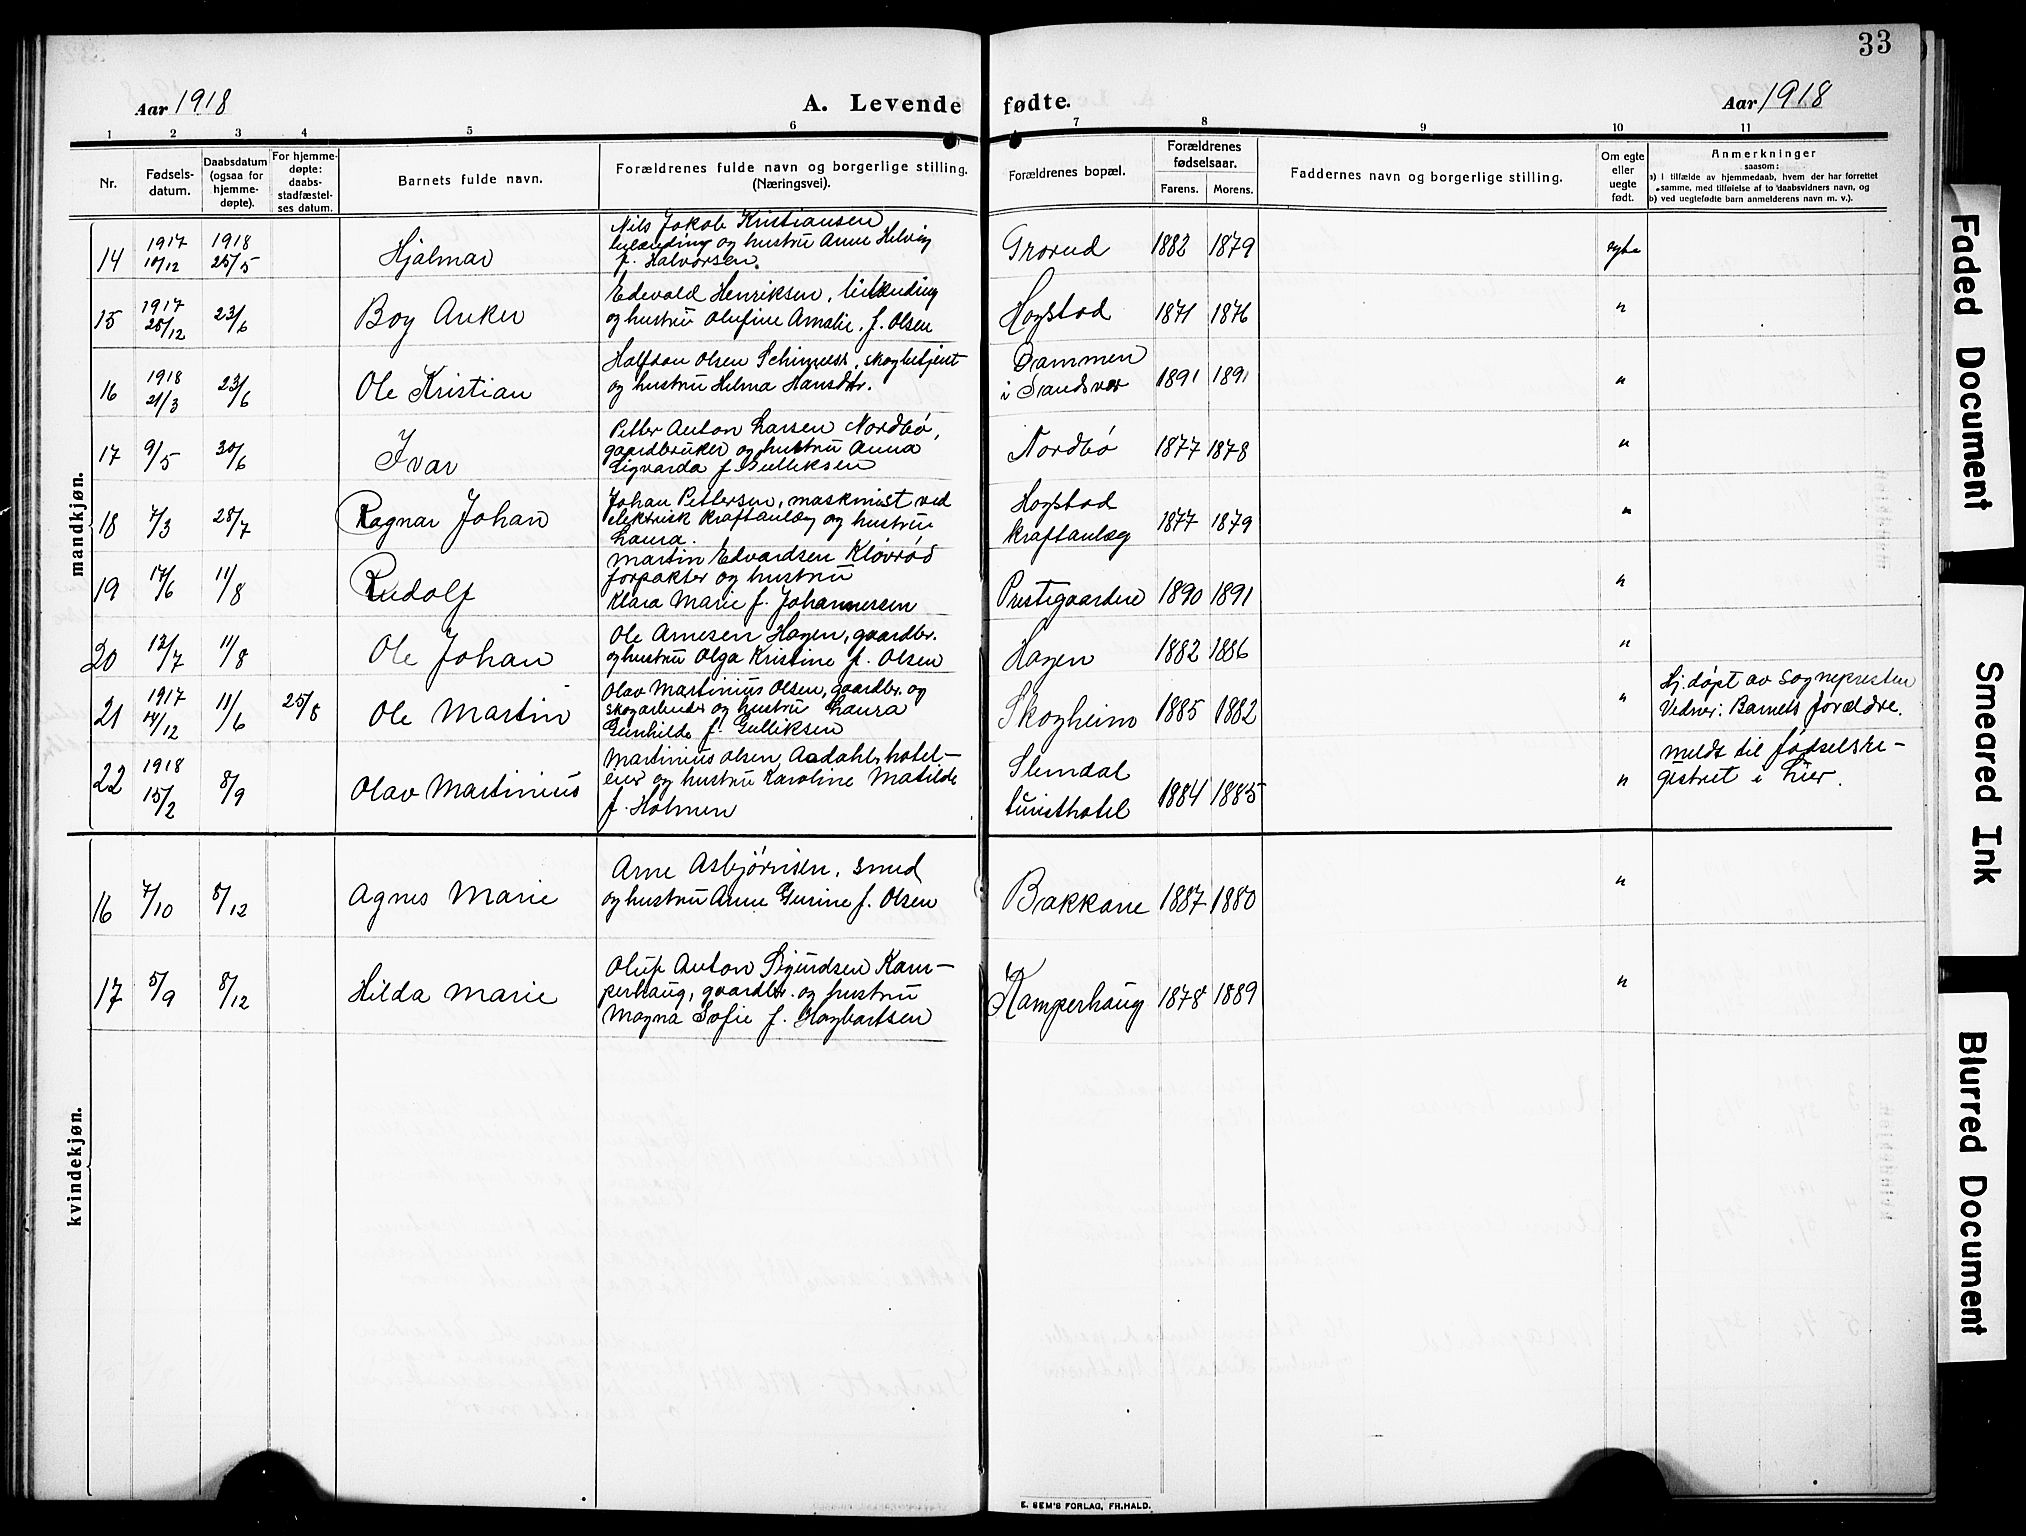 33
Aar 1918
A. Levende fødte.
Aar 1918
1 2 3 4 5 6 7 8 9 10 11
Nr.
Fødsels-
datum.
Daabsdatum
(ogsaa for
hjemme-
døpte).
For hjemme-
døpte:
daabs-
stadfæstel-
ses datum.
Barnets fulde navn.
Forældrenes fulde navn og borgerlige stilling.
(Næringsvei).
Forældrenes bopæl.
Forældrenes
fødselsaar.
Farens. Morens.
Faddernes navn og borgerlige stilling.
Om egte
eller
uegte
født.
Anmerkninger
saasom:
a) i tilfælde av hjemmedaab, hvem der har forrettet
samme, med tilføielse af to daabsvidners navn, og
b) ved uegtefødte barn anmelderens navn m. v.).
mandkjøn.
14
1917
10/12
1918
25/5
Hjalmar
Nils Jakob Kristiansen
leilænding og hustru Anne Helvig
f. Halvorsen.
Grorud
1882 1879
egte
15
1917
28/12
23/6
Boy Anker
Edevald Henriksen, leilænding
og hustru Olufine Amalie, f. Olsen
Hogstad
1871 1876
"
16
1918
21/3
23/6
Ole Kristian
Halfdan Olsen skogbetjent
og hustru Helma Hansdtr.
Dammen
i Sandsvær
1891 1891
"
17
9/5
30/6
Ivar
Petter Anton Larsen Nordbø,
gaardbruker og hustru Anna
Sigvarda f. Gulliksen
Nordbø
1877 1878
"
18
7/3
28/7
Ragnar Johan
Johan Pettersen, maskinist ved
elektrisk kraftanlæg og hustru
Laura.
Hogstad
kraftanlæg
1877 1879
"
19
17/6
11/8
Rudolf
Martin Edvardsen Kløvrød
forpakter og hustru
Klara Marie f. Johannessen
Prestegaardene
1890 1891
"
20
12/7
11/8
Ole Johan
Ole Arnesen Hagen, gaardbr.
og hustru Olga Kristine f. Olsen
Hagen
1882 1886
"
21
1917
14/12
11/6
25/8
Ole Martin
Olav Martinius Olsen, gaardbr. og
skogarbeider og hustru Laura
Gunhilde f. Gulliksen
Skogheim
1885 1882
"
Hj.døpt av sognepresten
Vidner: Barnets forældre.
22
1918
15/2
8/9
Olav Martinius
Martinius Olsen Aadahl, hotel-
eier og hustru Karoline Matilde
f. Holmen
Stendal
turisthotel
1884 1885
"
meldt til fødselsre-
gistret i Lier.
kvindekjøn.
16
7/10
8/12
Agnes Marie
Arne Asbjørnsen, smed
og hustru Anne Gurine f. Olsen
Bakkane
1887 1880
"
17
5/9
8/12
Hilda Marie
Oluf Anton Sigurdsen Kam-
perhaug, gaardbr. og hustru
Magna Sofie f. Hagbartsen
Kamperhaug
1878 1889
"
E. SEM'S FORLAG, FR.HALD.
Faded Document
Smeared Ink
Blurred Document